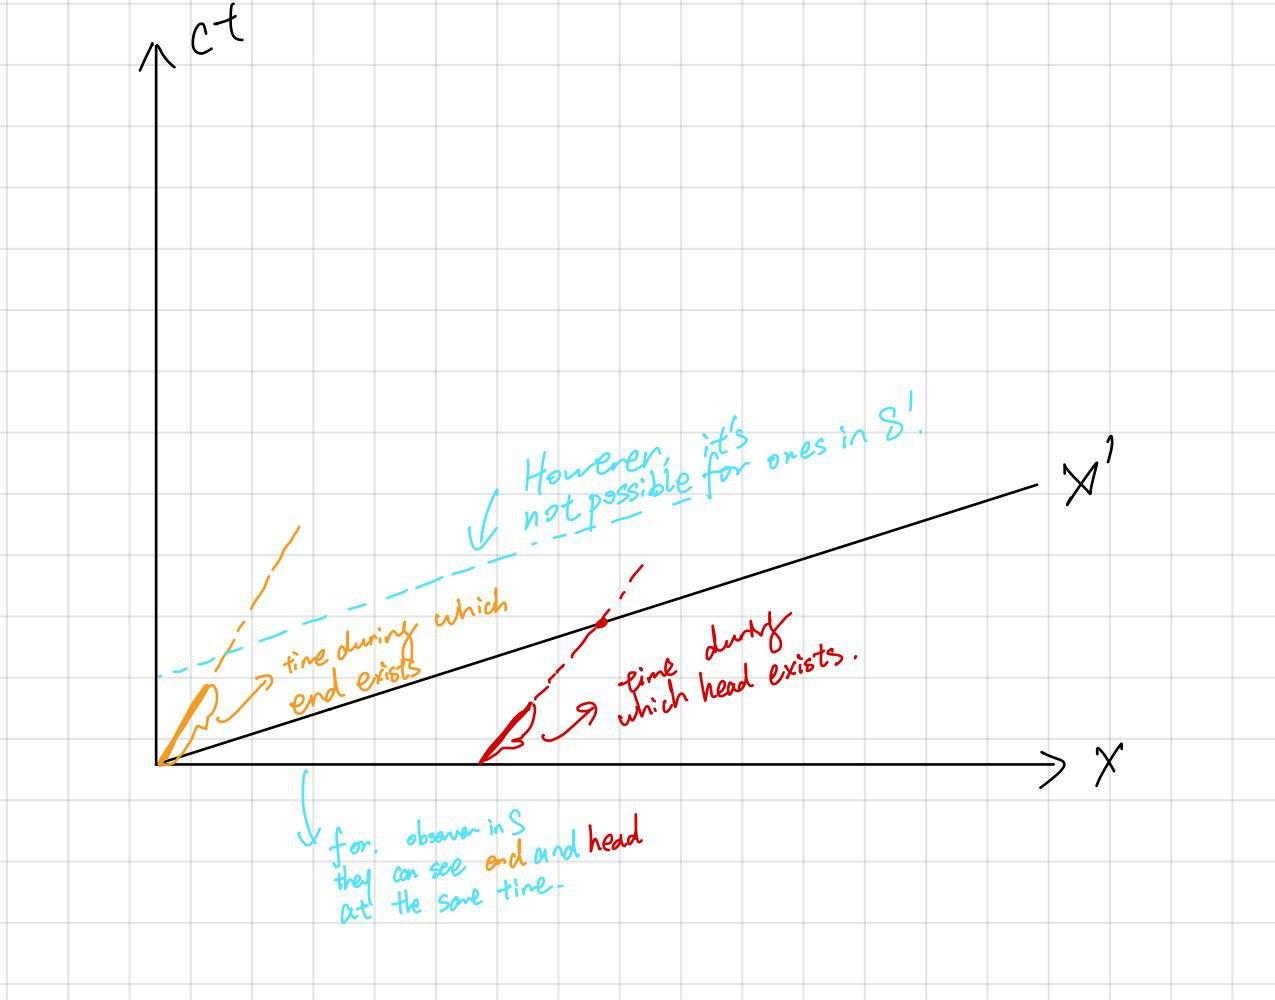 ct
However, it's
not possible for ones in S'.
x'
time during which
end exists
time during
which head exists.
x
for. observer in S
they can see end and head
at the same time.